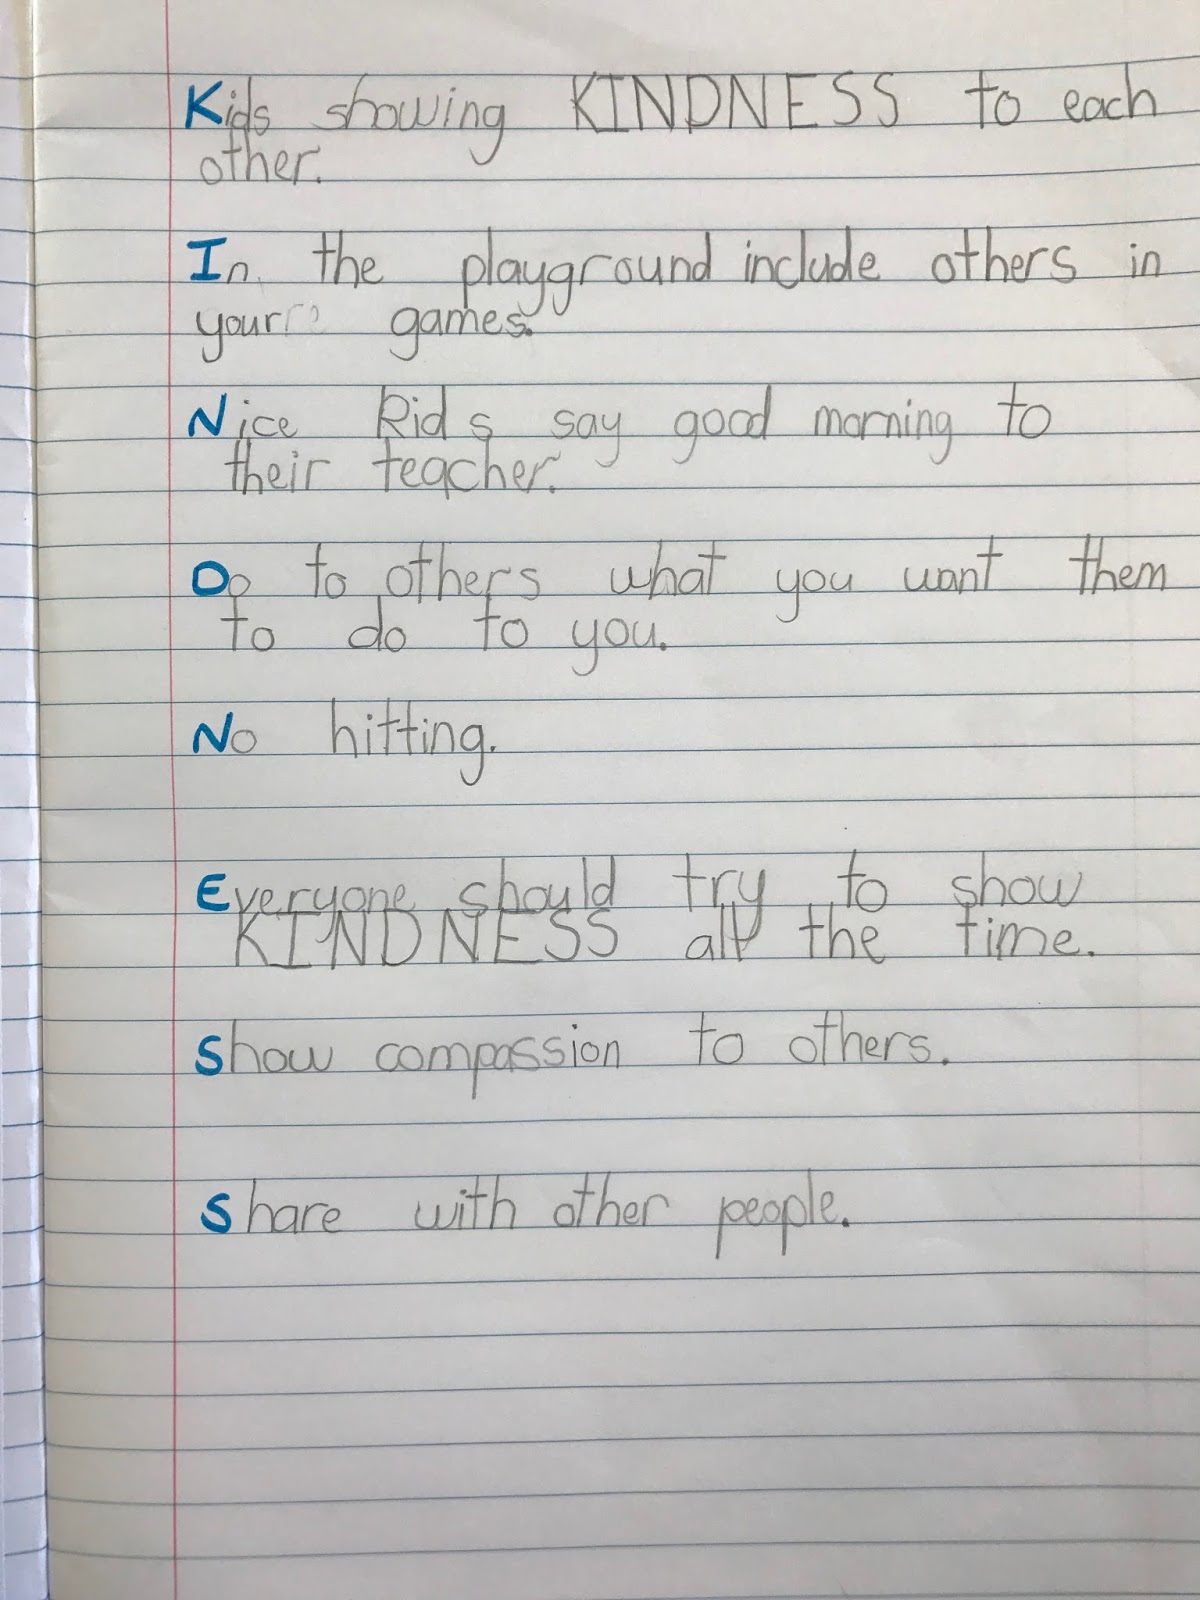 Kids showing KINDNESS to each
other.
In the playground include others in
your games.
Nice kids say good morning to
their teacher.
Do to others what you want them
to do to you.
No hitting.
Everyone should try to show
KINDNESS all the time.
Show compassion to others.
Share with other people.